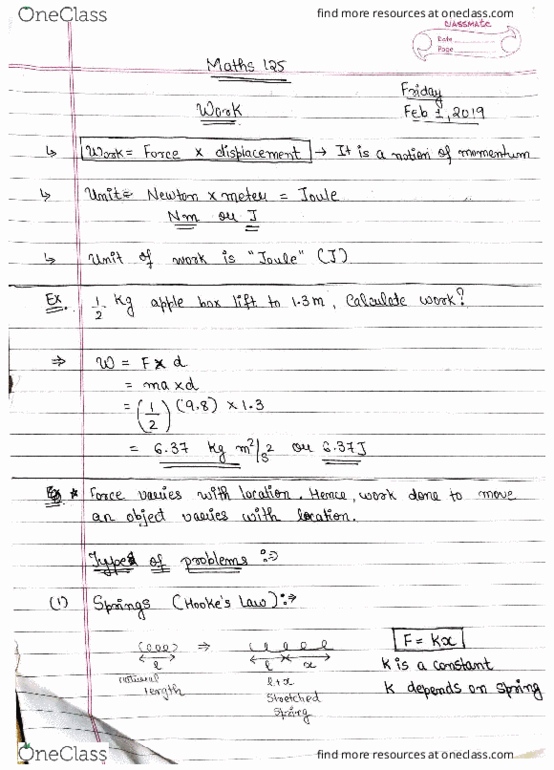 OneClass
find more resources at oneclass.com
CLASSMATE
Date
Page
Maths 125
Friday
Feb 1, 2019
Work
↳ Work = Force × displacement → It is a notion of momentum
↳ Unit = Newton × meter = Joule
Nm or J
↳ Unit of work is "Joule" (J)
Ex. 1/2 kg apple box lift to 1.3m, Calculate work?
⇒ W = F × d
= ma × d
= (1/2) (9.8) × 1.3
= 6.37 kg m²/s² or 6.37J
* Force varies with location. Hence, work done to move
an object varies with location.
Types of problems :⇒
(1) Springs (Hooke's Law) :⇒
⇒
F = Kx
l
l x
K is a constant
natural
length
l+x
Stretched
Spring
K depends on spring
OneClass
find more resources at oneclass.com